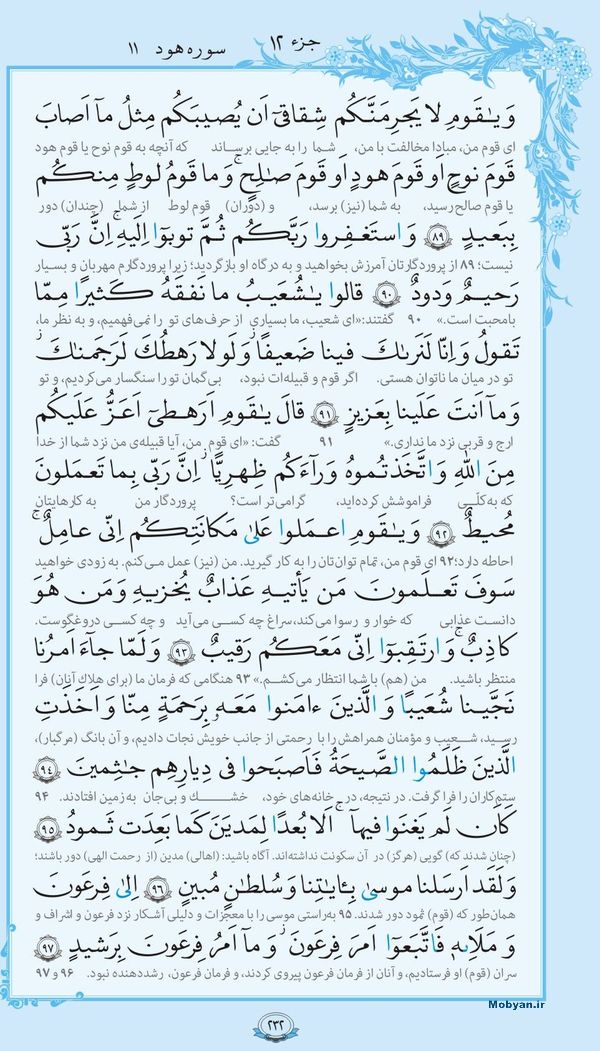 جزء ۱۲ سوره هود ۱۱
وَ يٰقَومِ لا يَجرِمَنَّكُم شِقاقىٓ اَن يُصيبَكُم مِثلُ مآ اَصابَ
ای قوم من، مبادا مخالفت با من، شما را به جایی برساند که آنچه به قوم نوح یا قوم هود
قَومَ نوحٍ اَو قَومَ هودٍ اَو قَومَ صٰلِحٍ ۚ وَ ما قَومُ لوطٍ مِنكُم
یا قوم صالح رسید، به شما (نیز) برسد، و (دوران) قوم لوط از شما (چندان) دور
بِبَعيدٍ ﴿۸۹﴾ وَ استَغفِروا رَبَّكُم ثُمَّ توبوٓا اِلَيهِ ۚ اِنَّ رَبّى
نیست؛ ۸۹ از پروردگارتان آمرزش بخواهید و به درگاه او بازگردید؛ زیرا پروردگارم مهربان و بسیار
رَحيمٌ وَدودٌ ﴿۹۰﴾ قالوا يٰشُعَيبُ ما نَفقَهُ كَثيرًا مِمّا
بامحبت است.» ۹۰ گفتند: «ای شعیب، ما بسیاری از حرف‌های تو را نمی‌فهمیم، و به نظر ما،
تَقولُ وَ اِنّا لَنَرٰىكَ فينا ضَعيفًا ۖ وَ لَولا رَهطُكَ لَرَجَمنٰكَ ۖ
تو در میان ما ناتوان هستی. اگر قوم و قبیله‌ات نبود، بی‌گمان تو را سنگسار می‌کردیم، و تو
وَ مآ اَنتَ عَلَينا بِعَزيزٍ ﴿۹۱﴾ قالَ يٰقَومِ اَرَهطىٓ اَعَزُّ عَلَيكُم
ارج و قربی نزد ما نداری.» ۹۱ گفت: «ای قوم من، آیا قبیله‌ی من نزد شما از خدا
مِنَ اللّٰهِ وَ اتَّخَذتُموهُ وَرآءَكُم ظِهرِيًّا ۖ اِنَّ رَبّى بِما تَعمَلونَ
که به‌کلّی فراموشش کرده‌اید، گرامی‌تر است؟ پروردگار من به کارهایتان
مُحيطٌ ﴿۹۲﴾ وَ يٰقَومِ اعمَلوا عَلىٰ مَكانَتِكُم اِنّى عامِلٌ ۖ
احاطه دارد؛ ۹۲ ای قوم من، تمام توان‌تان را به کار گیرید. من (نیز) عمل می‌کنم. به زودی خواهید
سَوفَ تَعلَمونَ مَن يَأتيهِ عَذابٌ يُخزيهِ وَ مَن هُوَ
دانست عذابی که خوار و رسوا می‌کند، سراغ چه کسی می‌آید و چه کسی دروغگوست.
كاذِبٌ ۖ وَ ارتَقِبوٓا اِنّى مَعَكُم رَقيبٌ ﴿۹۳﴾ وَ لَمّا جآءَ اَمرُنا
منتظر باشید. من (هم) با شما انتظار می‌کشم.» ۹۳ هنگامی که فرمان ما (برای هلاک آنان) فرا
نَجَّينا شُعَيبًا وَ الَّذينَ ءامَنوا مَعَهٗ بِرَحمَةٍ مِنّا وَ اَخَذَتِ
رسید، شعیب و مؤمنان همراهش را با رحمتی از جانب خویش نجات دادیم، و آن بانگ (مرگبار)،
الَّذينَ ظَلَمُوا الصَّيحَةُ فَاَصبَحوا فى دِيارِهِم جٰثِمينَ ﴿۹۴﴾
ستم‌کاران را فرا گرفت. در نتیجه، در خانه‌های خود، خشک و بی‌جان به زمین افتادند. ۹۴
كَاَن لَم يَغنَوا فيهآ ۗ اَلا بُعدًا لِمَديَنَ كَما بَعِدَت ثَمودُ ﴿۹۵﴾
(چنان شدند که) گویی (هرگز) در آن سکونت نداشته‌اند. آگاه باشید: (اهالی) مدین (از رحمت الهی) دور باشند؛
وَ لَقَد اَرسَلنا موسىٰ بِـٔايٰتِنا وَ سُلطٰنٍ مُبينٍ ﴿۹۶﴾ اِلىٰ فِرعَونَ
همان‌طور که (قوم) ثمود دور شدند. ۹۵ به‌راستی موسی را با معجزات و دلیلی آشکار نزد فرعون و اشراف و
وَ مَلَا۟ئِهٖ فَاتَّبَعوٓا اَمرَ فِرعَونَ ۖ وَ مآ اَمرُ فِرعَونَ بِرَشيدٍ ﴿۹۷﴾
سران (قوم) او فرستادیم، و آنان از فرمان فرعون پیروی کردند، و فرمان فرعون، رشددهنده نبود. ۹۶ و ۹۷
Mobyan.ir
۲۳۲